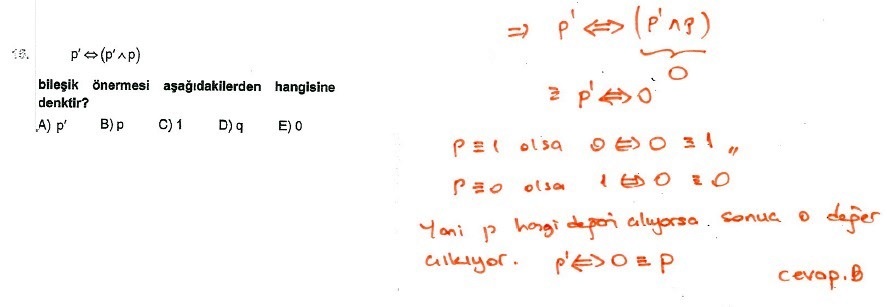 15. p' ⇔ (p' ∧ p)
bileşik önermesi aşağıdakilerden hangisine
denktir?
A) p' B) p C) 1 D) q E) 0
⇒ p' ⇔ (p' ∧ p)
0
≡ p' ⇔ 0
p ≡ 1 olsa 0 ⇔ 0 ≡ 1 〃
p ≡ 0 olsa 1 ⇔ 0 ≡ 0
Yani p hangi değeri alıyorsa sonuc o değer
cıkıyor. p' ⇔ 0 ≡ p
cevap.B